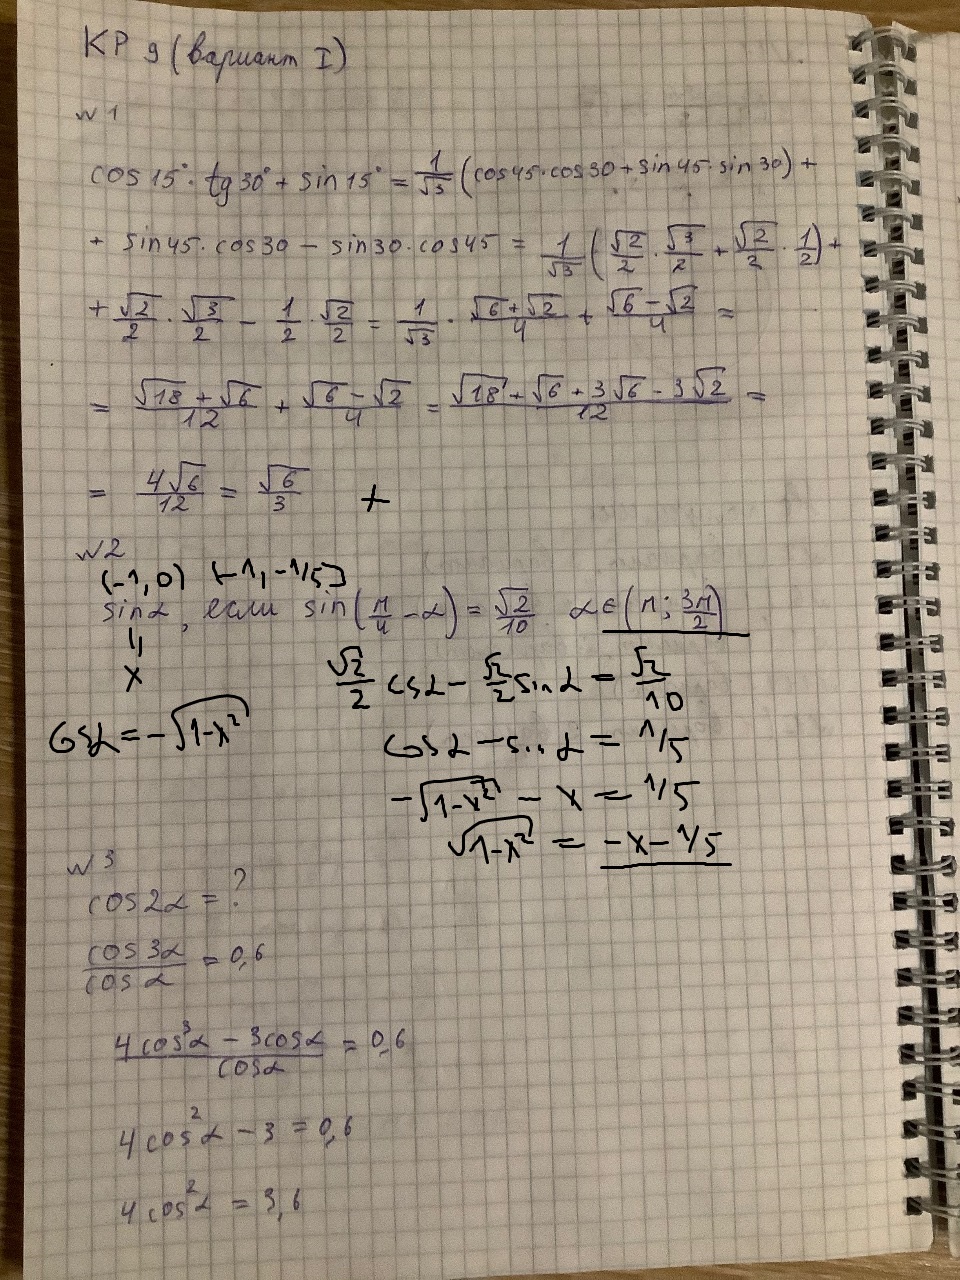 КР 9 (вариант I)
№1
cos15°·tg30° + sin15° = 1/√3 (cos45·cos30 + sin45·sin30) +
+ sin45·cos30 − sin30·cos45 = 1/√3 (√2/2 · √3/2 + √2/2 · 1/2) +
+ √2/2 · √3/2 − 1/2 · √2/2 = 1/√3 · (√6+√2)/4 + (√6−√2)/4 =
= (√18+√6)/12 + (√6−√2)/4 = (√18+√6+3√6−3√2)/12 =
= 4√6/12 = √6/3 +
№2
(-1,0) [-1,-1/5]
sinα, если sin(π/4 − α) = √2/10 α∈(π; 3π/2)
||
x
√2/2 cosα − √2/2 sinα = √2/10
cosα = −√(1−x²)
cosα − sinα = 1/5
−√(1−x²) − x = 1/5
√(1−x²) = −x − 1/5
№3
cos2α = ?
cos3α/cosα = 0,6
(4cos³α − 3cosα)/cosα = 0,6
4cos²α − 3 = 0,6
4cos²α = 3,6